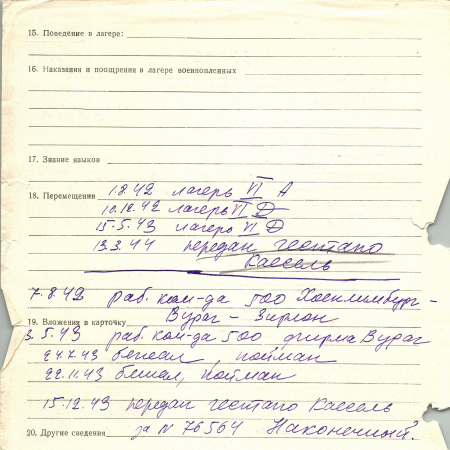 15. Поведение в лагере:
16. Наказания и поощрения в лагере военнопленных
17. Знание языков
18. Перемещения 1.8.42 лагерь VI A
10.12.42 лагерь VI D
15.5.43 лагерь VI D
13.3.44 передан гестапо
Кассель
7.8.42 раб. ком-да 500 Хоенлимбург-
Вураг -
19. Вложения в карточку
3.5.43 раб. ком-да 500 фирма Вураг
24.7.43 бежал, пойман
22.11.43 бежал, пойман
15.12.43 передан гестапо Кассель
20. Другие сведения за N 76564 Наконечный.